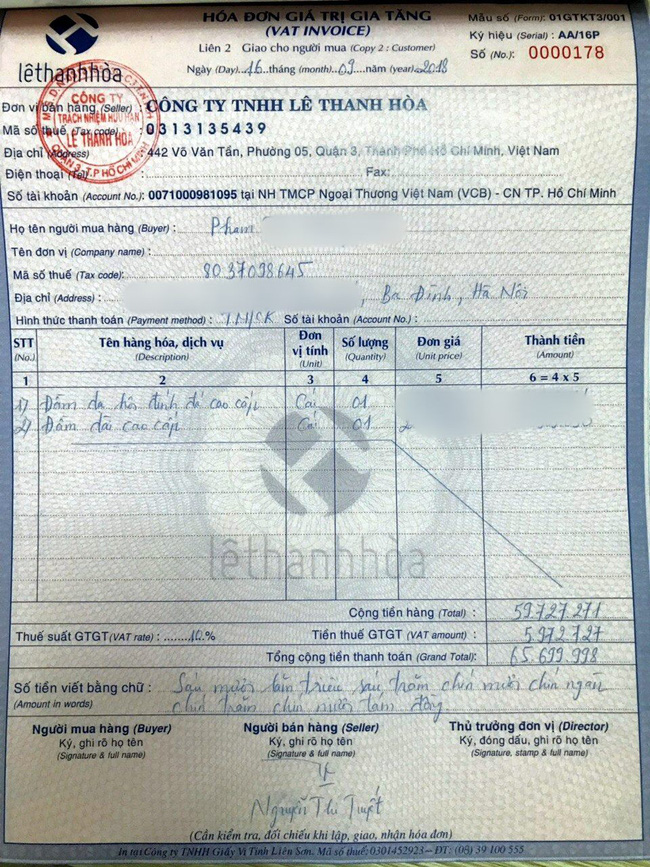 HÓA ĐƠN GIÁ TRỊ GIA TĂNG
(VAT INVOICE)
Liên 2 Giao cho người mua (Copy 2 : Customer)
Ngày (Day) 16 tháng (month) 09 năm (year) 2018
Mẫu số (Form): 01GTKT3/001
Ký hiệu (Serial) : AA/16P
Số (No.) : 0000178
lêthanhhòa
CÔNG TY
TRÁCH NHIỆM HỮU HẠN
LÊ THANH HÒA
QUẬN 3 - T.P HỒ CHÍ MINH
Đơn vị bán hàng (Seller) : CÔNG TY TNHH LÊ THANH HÒA
Mã số thuế (Tax code) : 0313135439
Địa chỉ (Address) : 442 Võ Văn Tần, Phường 05, Quận 3, Thành Phố Hồ Chí Minh, Việt Nam
Điện thoại (Tel) : Fax:
Số tài khoản (Account No.): 0071000981095 tại NH TMCP Ngoại Thương Việt Nam (VCB) - CN TP. Hồ Chí Minh
Họ tên người mua hàng (Buyer) : Phạm
Tên đơn vị (Company name) :
Mã số thuế (Tax code): 8037098645
Địa chỉ (Address) : , Ba Đình, Hà Nội
Hình thức thanh toán (Payment method) : TM/CK Số tài khoản (Account No.) :
STT (No.) Tên hàng hóa, dịch vụ (Description) Đơn vị tính (Unit) Số lượng (Quantity) Đơn giá (Unit price) Thành tiền (Amount)
1 2 3 4 5 6 = 4 x 5
1) Đầm dạ hội đính đá cao cấp Cái 01
2) Đầm dài cao cấp Cái 01 2
lêthanhhòa
Cộng tiền hàng (Total) : 59.727.271
Thuế suất GTGT (VAT rate) : 10.% Tiền thuế GTGT (VAT amount) : 5.972.727
Tổng cộng tiền thanh toán (Grand Total): 65.699.998
Số tiền viết bằng chữ : Sáu mươi lăm triệu sáu trăm chín mươi chín ngàn
(Amount in words) chín trăm chín mươi tám đồng
Người mua hàng (Buyer) Người bán hàng (Seller) Thủ trưởng đơn vị (Director)
Ký, ghi rõ họ tên Ký, ghi rõ họ tên Ký, đóng dấu, ghi rõ họ tên
(Signature & full name) (Signature & full name) (Signature, stamp & full name)
Nguyễn Thị Tuyết
(Cần kiểm tra, đối chiếu khi lập, giao, nhận hóa đơn)
In tại Công ty TNHH Giấy Vi Tính Liên Sơn. Mã số thuế: 0301452923 - ĐT: (08) 39 100 555